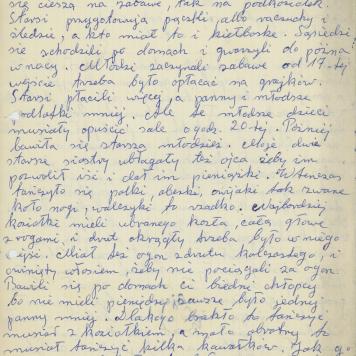 się cieszą na zabawę, tak na podkoziołek.
Starsi przygotowują pączki albo racuchy i
śledzie, a kto miał to i kiełbaskę. Sąsiedzi
się schodzili po domach i gwarzyli do późna
w nocy. Młodzi zaczynali zabawę od 17-tej
wejście trzeba było opłacać na grajków.
Starsi płacili więcej a panny i młodsze
podlotki mniej. Ale te młodsze dzieci
musiały opuścić sale o godz. 20-tej. Później
bawiła się starsza młodzież. Moje dwie
starsze siostry ubłagały też ojca żeby im
pozwolił iść i dał im pieniążki. Wtenczas
tańczyło się polki oberki, owijaki tak zwane
koło nogi, walczyki to rzadko. Najbardziej
koziołki mieli ubranego kozła, całą głowę
z rogami, i drut okrągły trzeba było w niego
wejść. Miał też ogon z drutu kolczastego, i
owinięty włosiem, żeby nie pociągali za ogon
Bawili się po domach ci biedni chłopcy
bo nie mieli pieniędzy, zawsze było jednej
panny mniej. Dlatego brakło to tańczyć
musiał z koziołkiem, a mało obrotny to
musiał tańczyć kilka kawałków. Jak go